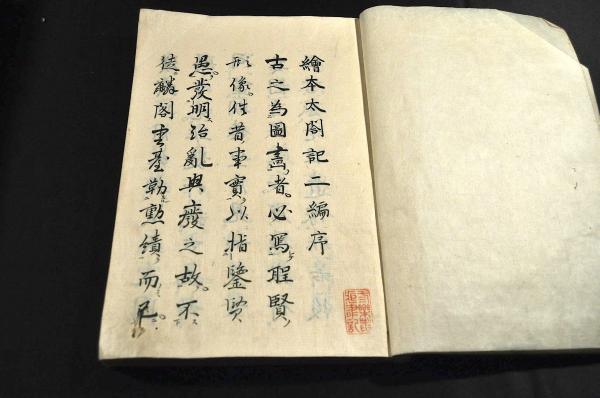 繪本太閤記二編序
古之為圖畫者必寫聖賢
形像徃昔事實以指鑒賢
愚發明治亂興癈之故不
徒麟閣雲臺勒勲績而已